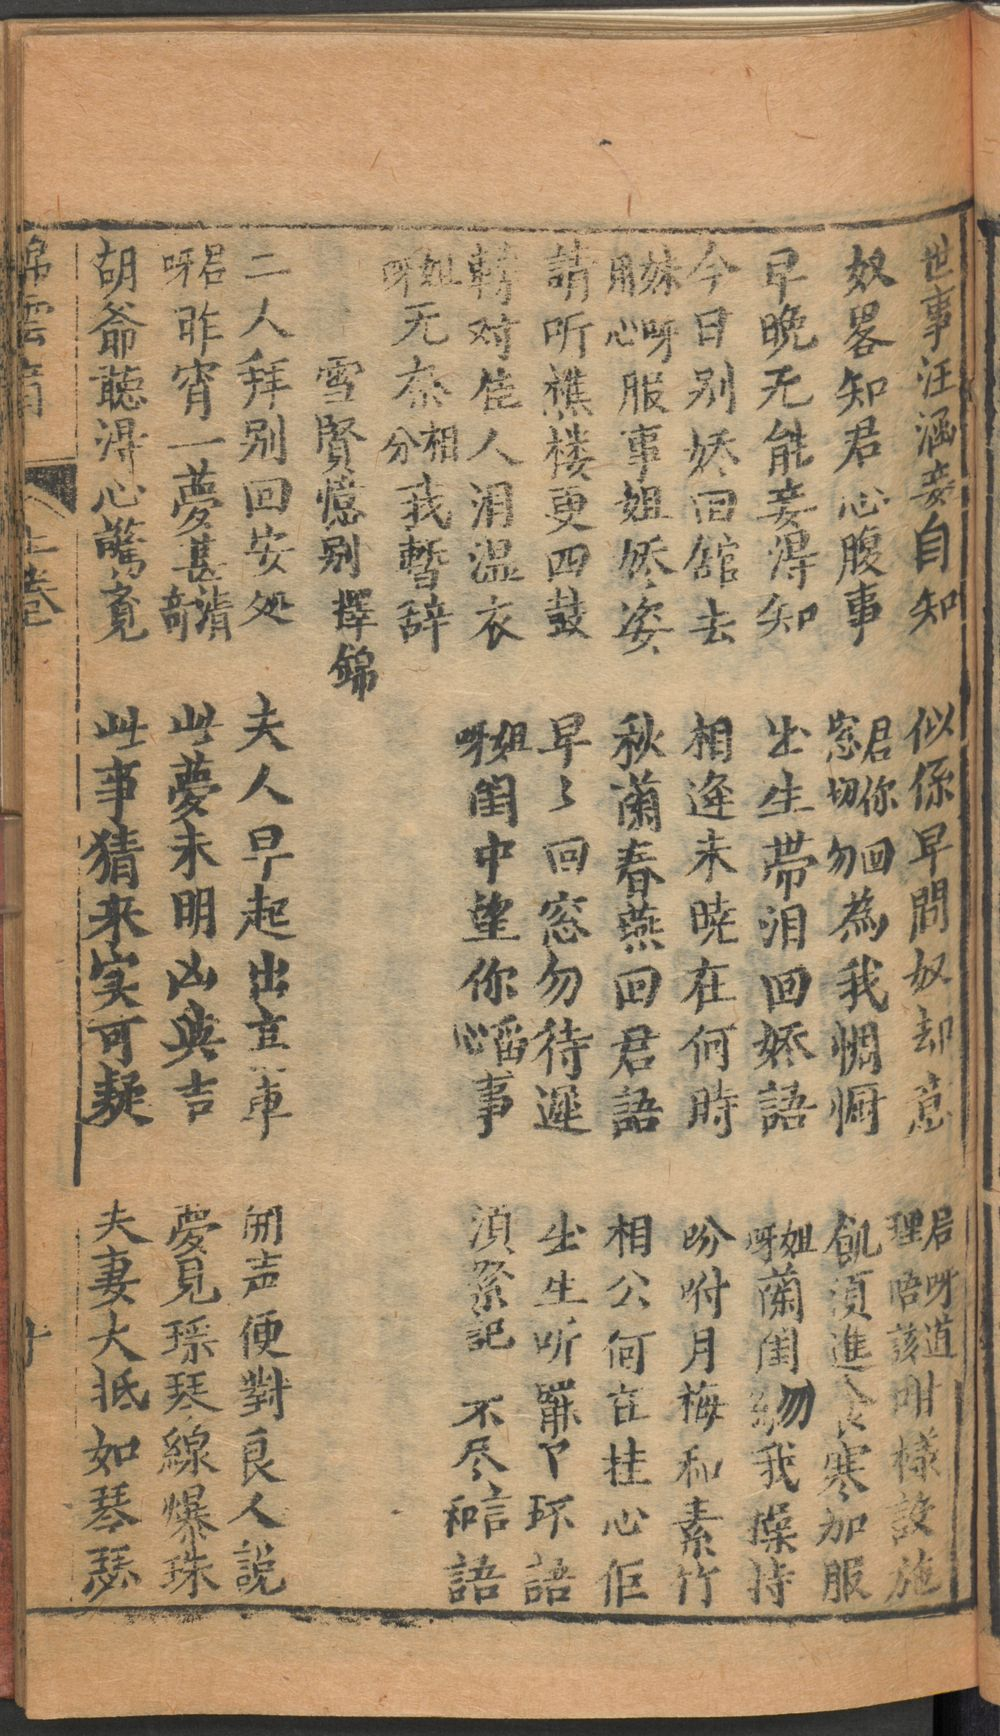 世事汪涵妾自知　似係早問奴却意　君呀道理唔該咁樣設施
奴畧知君心腹事　君你回窓切勿為我惆悵　飢須進食寒加服
早晚无能妾淂知　出生帶泪回嬌語　姐呀蘭閨勿我操持
今日别嬌回舘去　相逢未曉在何時　吩咐月梅和素竹
妹呀用心服事姐嬌姿　秋蘭春燕回君語　相公何在挂心佢
請听樵楼更四鼓　早〻回窓勿待遲　出生听罷卩环語
轉对佳人泪湿衣　姐呀閨中望你心留事　須緊記　不尽言和語
姐呀无奈相分我暫辞
雪賢憶别擇錦
二人拜别回安处　夫人早起出章　開声便對良人説
君呀昨宵一夢甚清奇　此夢未明凶與吉　夢見瑶琴線爆珠
胡爺聽淂心驚覔　此事猜来实可疑　夫妻大抵如琴瑟
錦雲　上卷　十